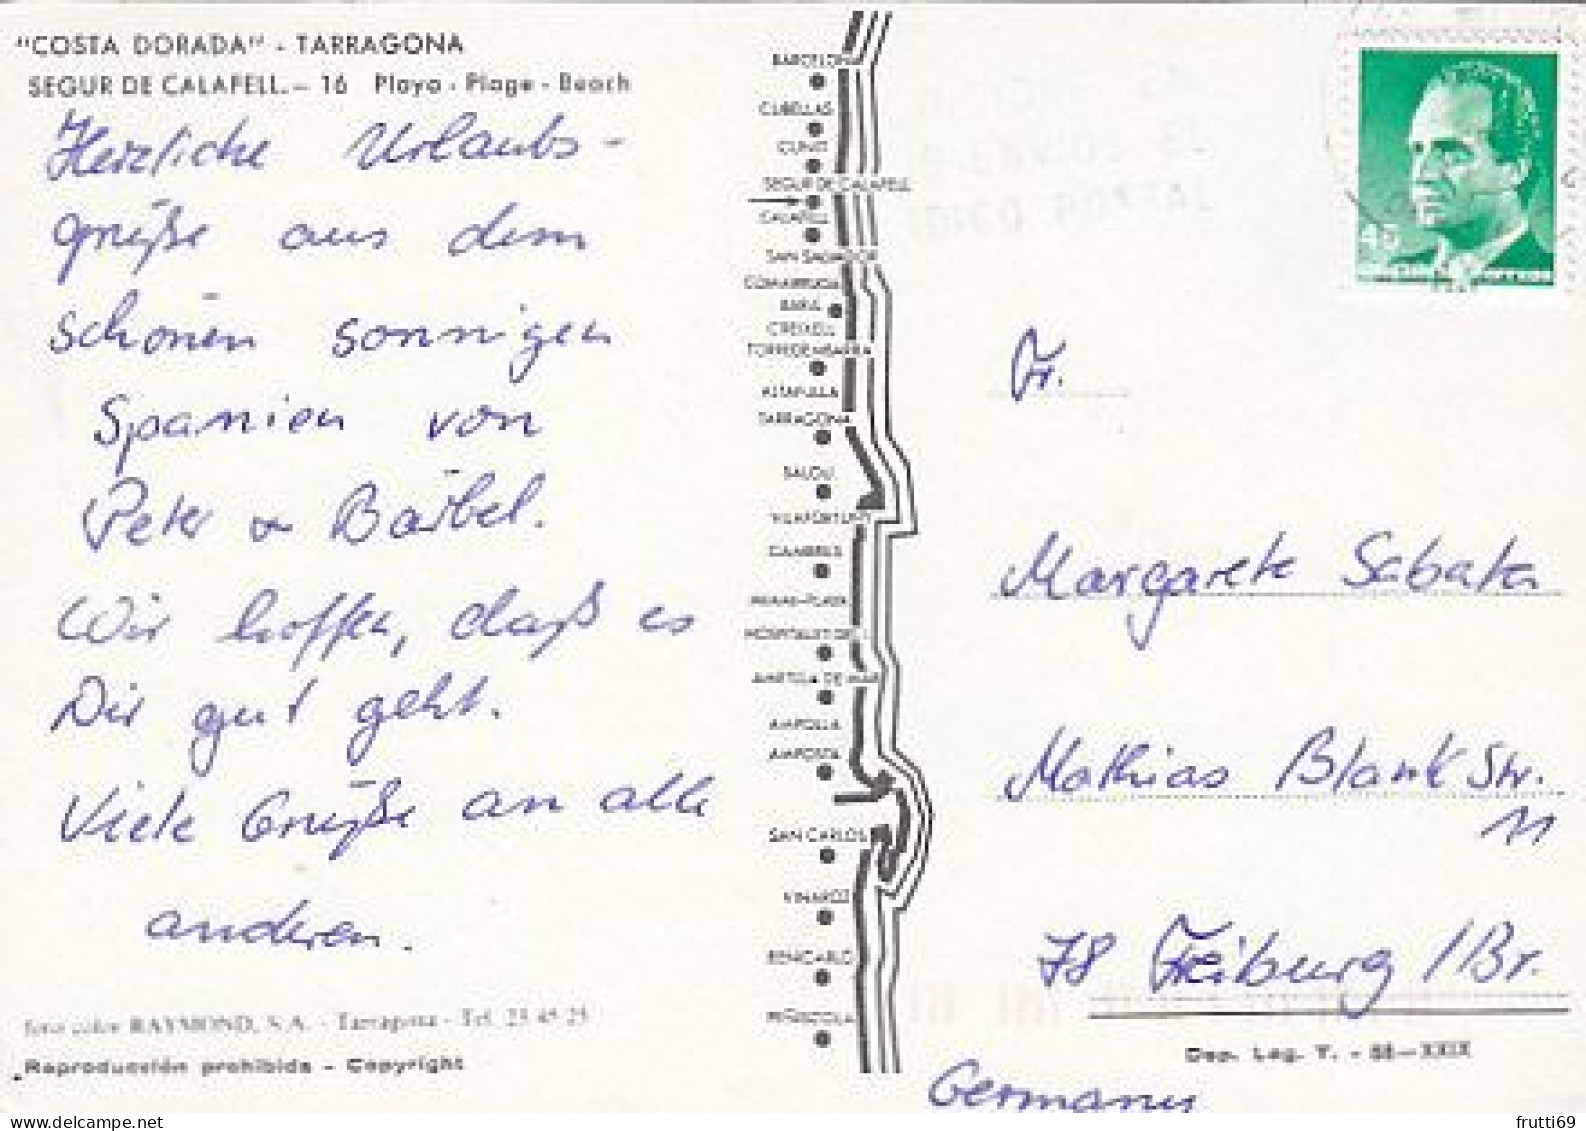 "COSTA DORADA" - TARRAGONA
SEGUR DE CALAFELL.— 16 Playa - Plage - Beach
Herzliche Urlaubs-
grüße aus dem
schönen sonnigen
Spanien von
Peter & Bärbel.
Wir hoffen, daß es
Dir gut geht.
Viele Grüße an alle
anderen.
foto color RAYMOND, S.A. - Tarragona - Tel. 23 45 25
Reproducción prohibida - Copyright
BARCELONA
CUBELLAS
CUNIT
SEGUR DE CALAFELL
CALAFELL
SAN SALVADOR
COMARRUGA
BARÁ
CREIXELL
TORREDEMBARRA
ALTAFULLA
TARRAGONA
SALOU
VILAFORTUNY
CAMBRILS
HOSPITALET DEL
AMETLLA DE MAR
AMPOLLA
AMPOSTA
SAN CARLOS
VINAROZ
BENICARLO
PEÑISCOLA
45
CORREOS
Fr.
Margarete Sabata
Mathias Blank Str.
11
78 Freiburg / Br.
Dep. Leg. T. - 58—XXIX
Germany
frutti69